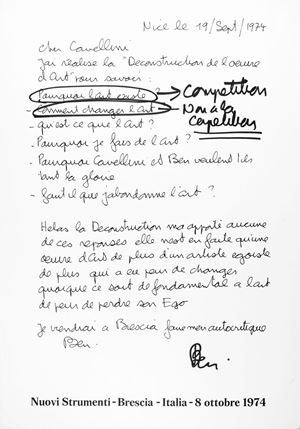 Nice le 19/Sept/1974
cher Cavellini
J'ai réalisé la "Deconstruction de l'oeuvre
d'Art" pour savoir :
- Pourquoi l'art existe → Competition
- Comment changer l'Art → Non à la
Competition
- qu'est ce que l'Art ?
- Pourquoi je fais de l'Art ?
- Pourquoi Cavellini et Ben veulent ils
tant la gloire
- faut il que j'abandonne l'art ?
Helas la Deconstruction m'a apporté aucune
de ces reponses elle n'est en faite qu'une
œuvre d'Art de plus d'un artiste egoiste
de plus qui a eu peur de changer
quoique ce soit de fondamental a l'art
de peur de perdre son Ego
Je viendrai a Brescia faire mon autocritique
Ben.
Ben.
Nuovi Strumenti - Brescia - Italia - 8 ottobre 1974